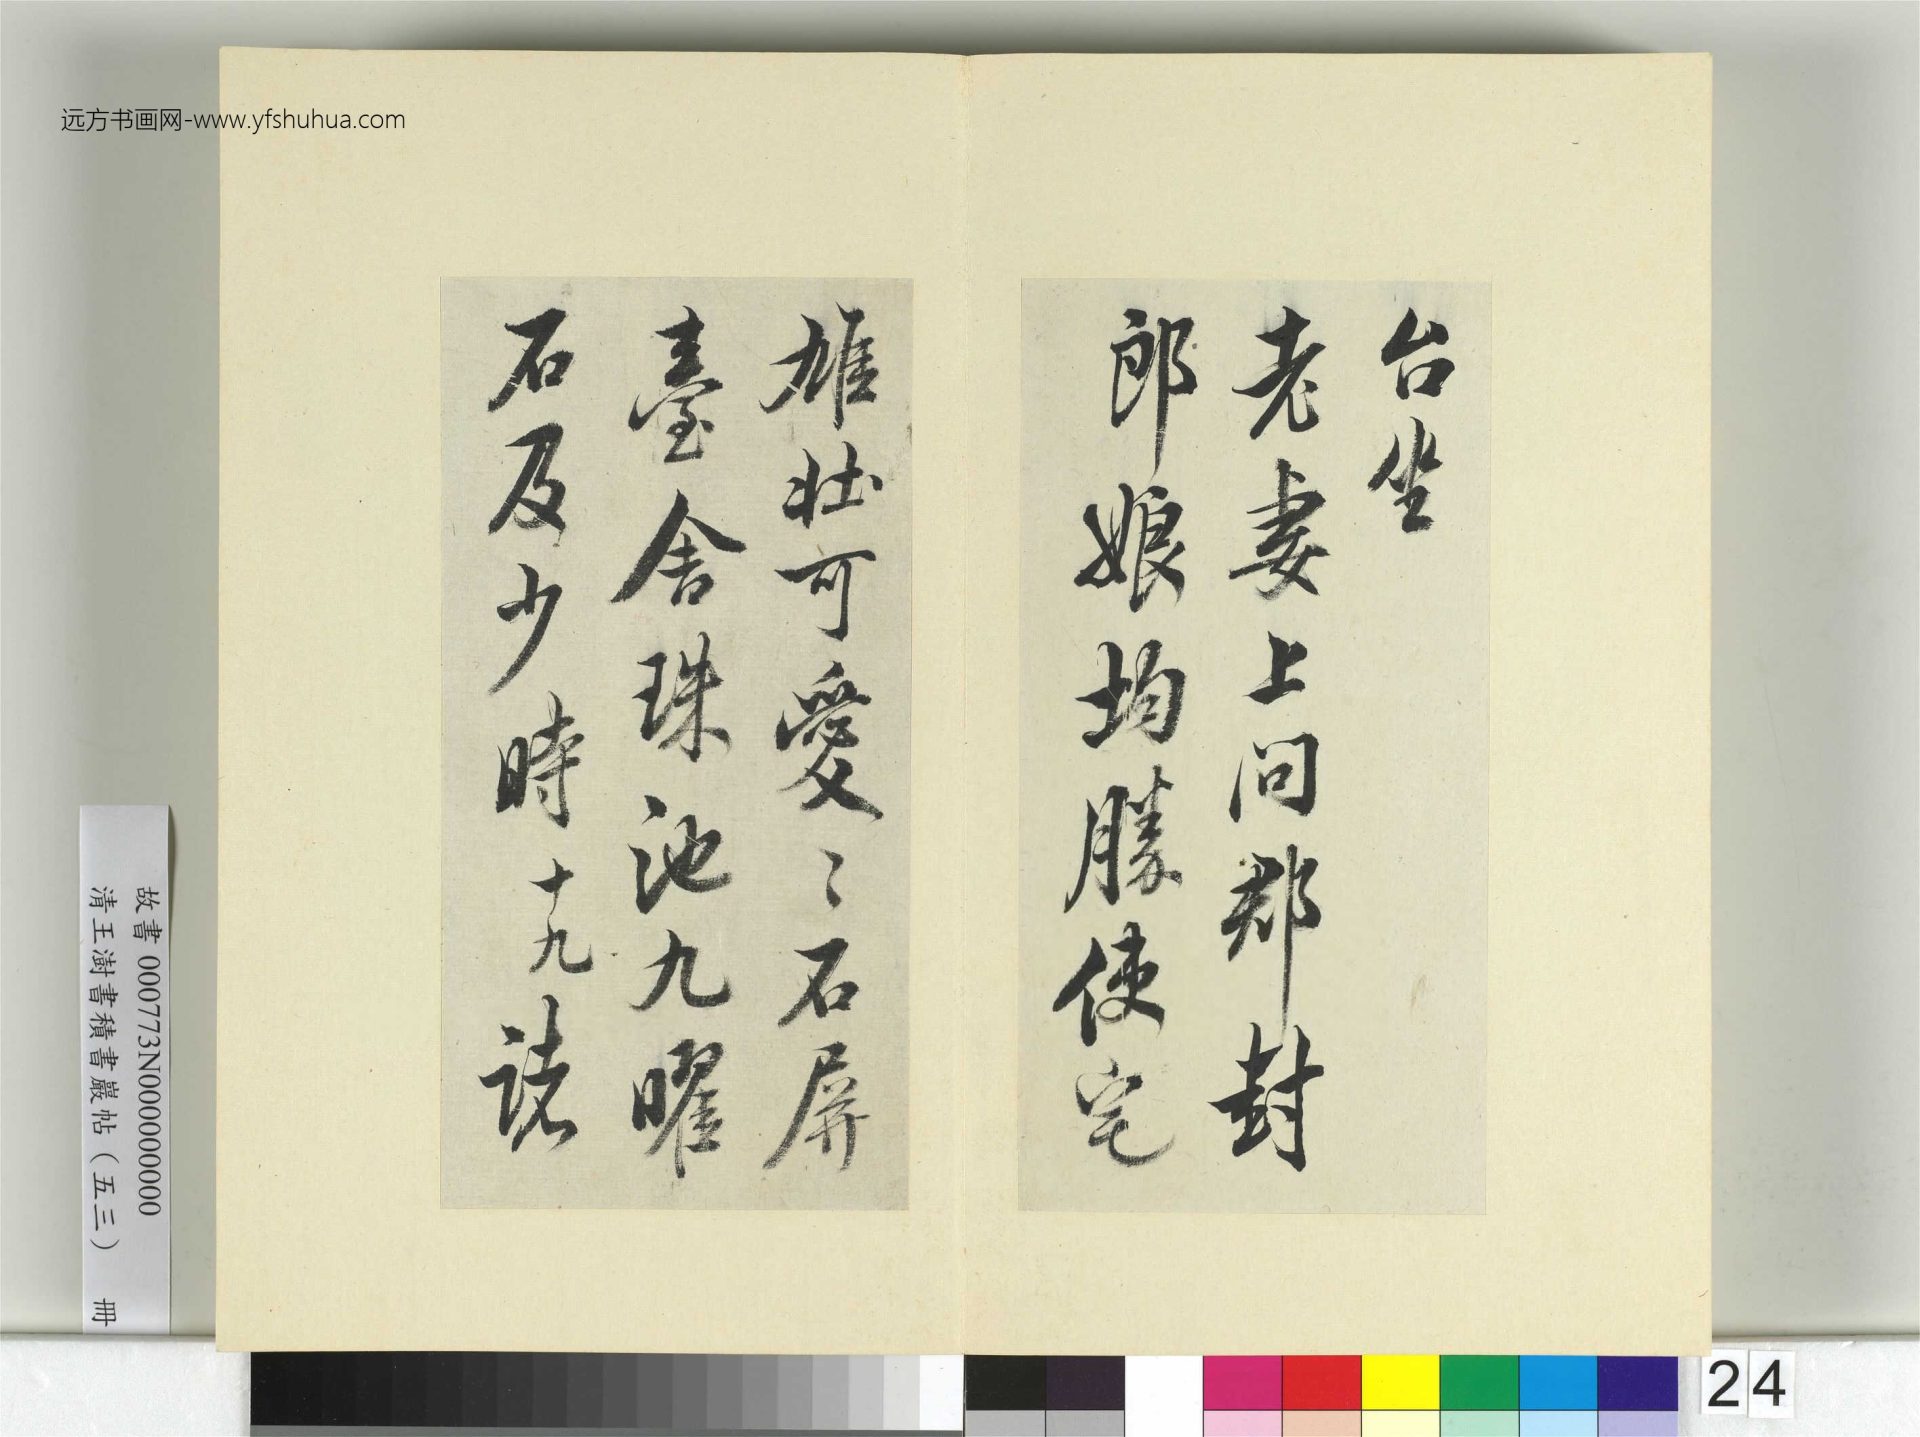 远方书画网-www.yfshuhua.com
台坐
老妻上问郡封
郎娘均勝使宅
雄壮可愛〻石屏
臺舍珠池九曜
石及少時十九諸
故書 000773N000000000
清王澍書積書巖帖（五三） 冊
24